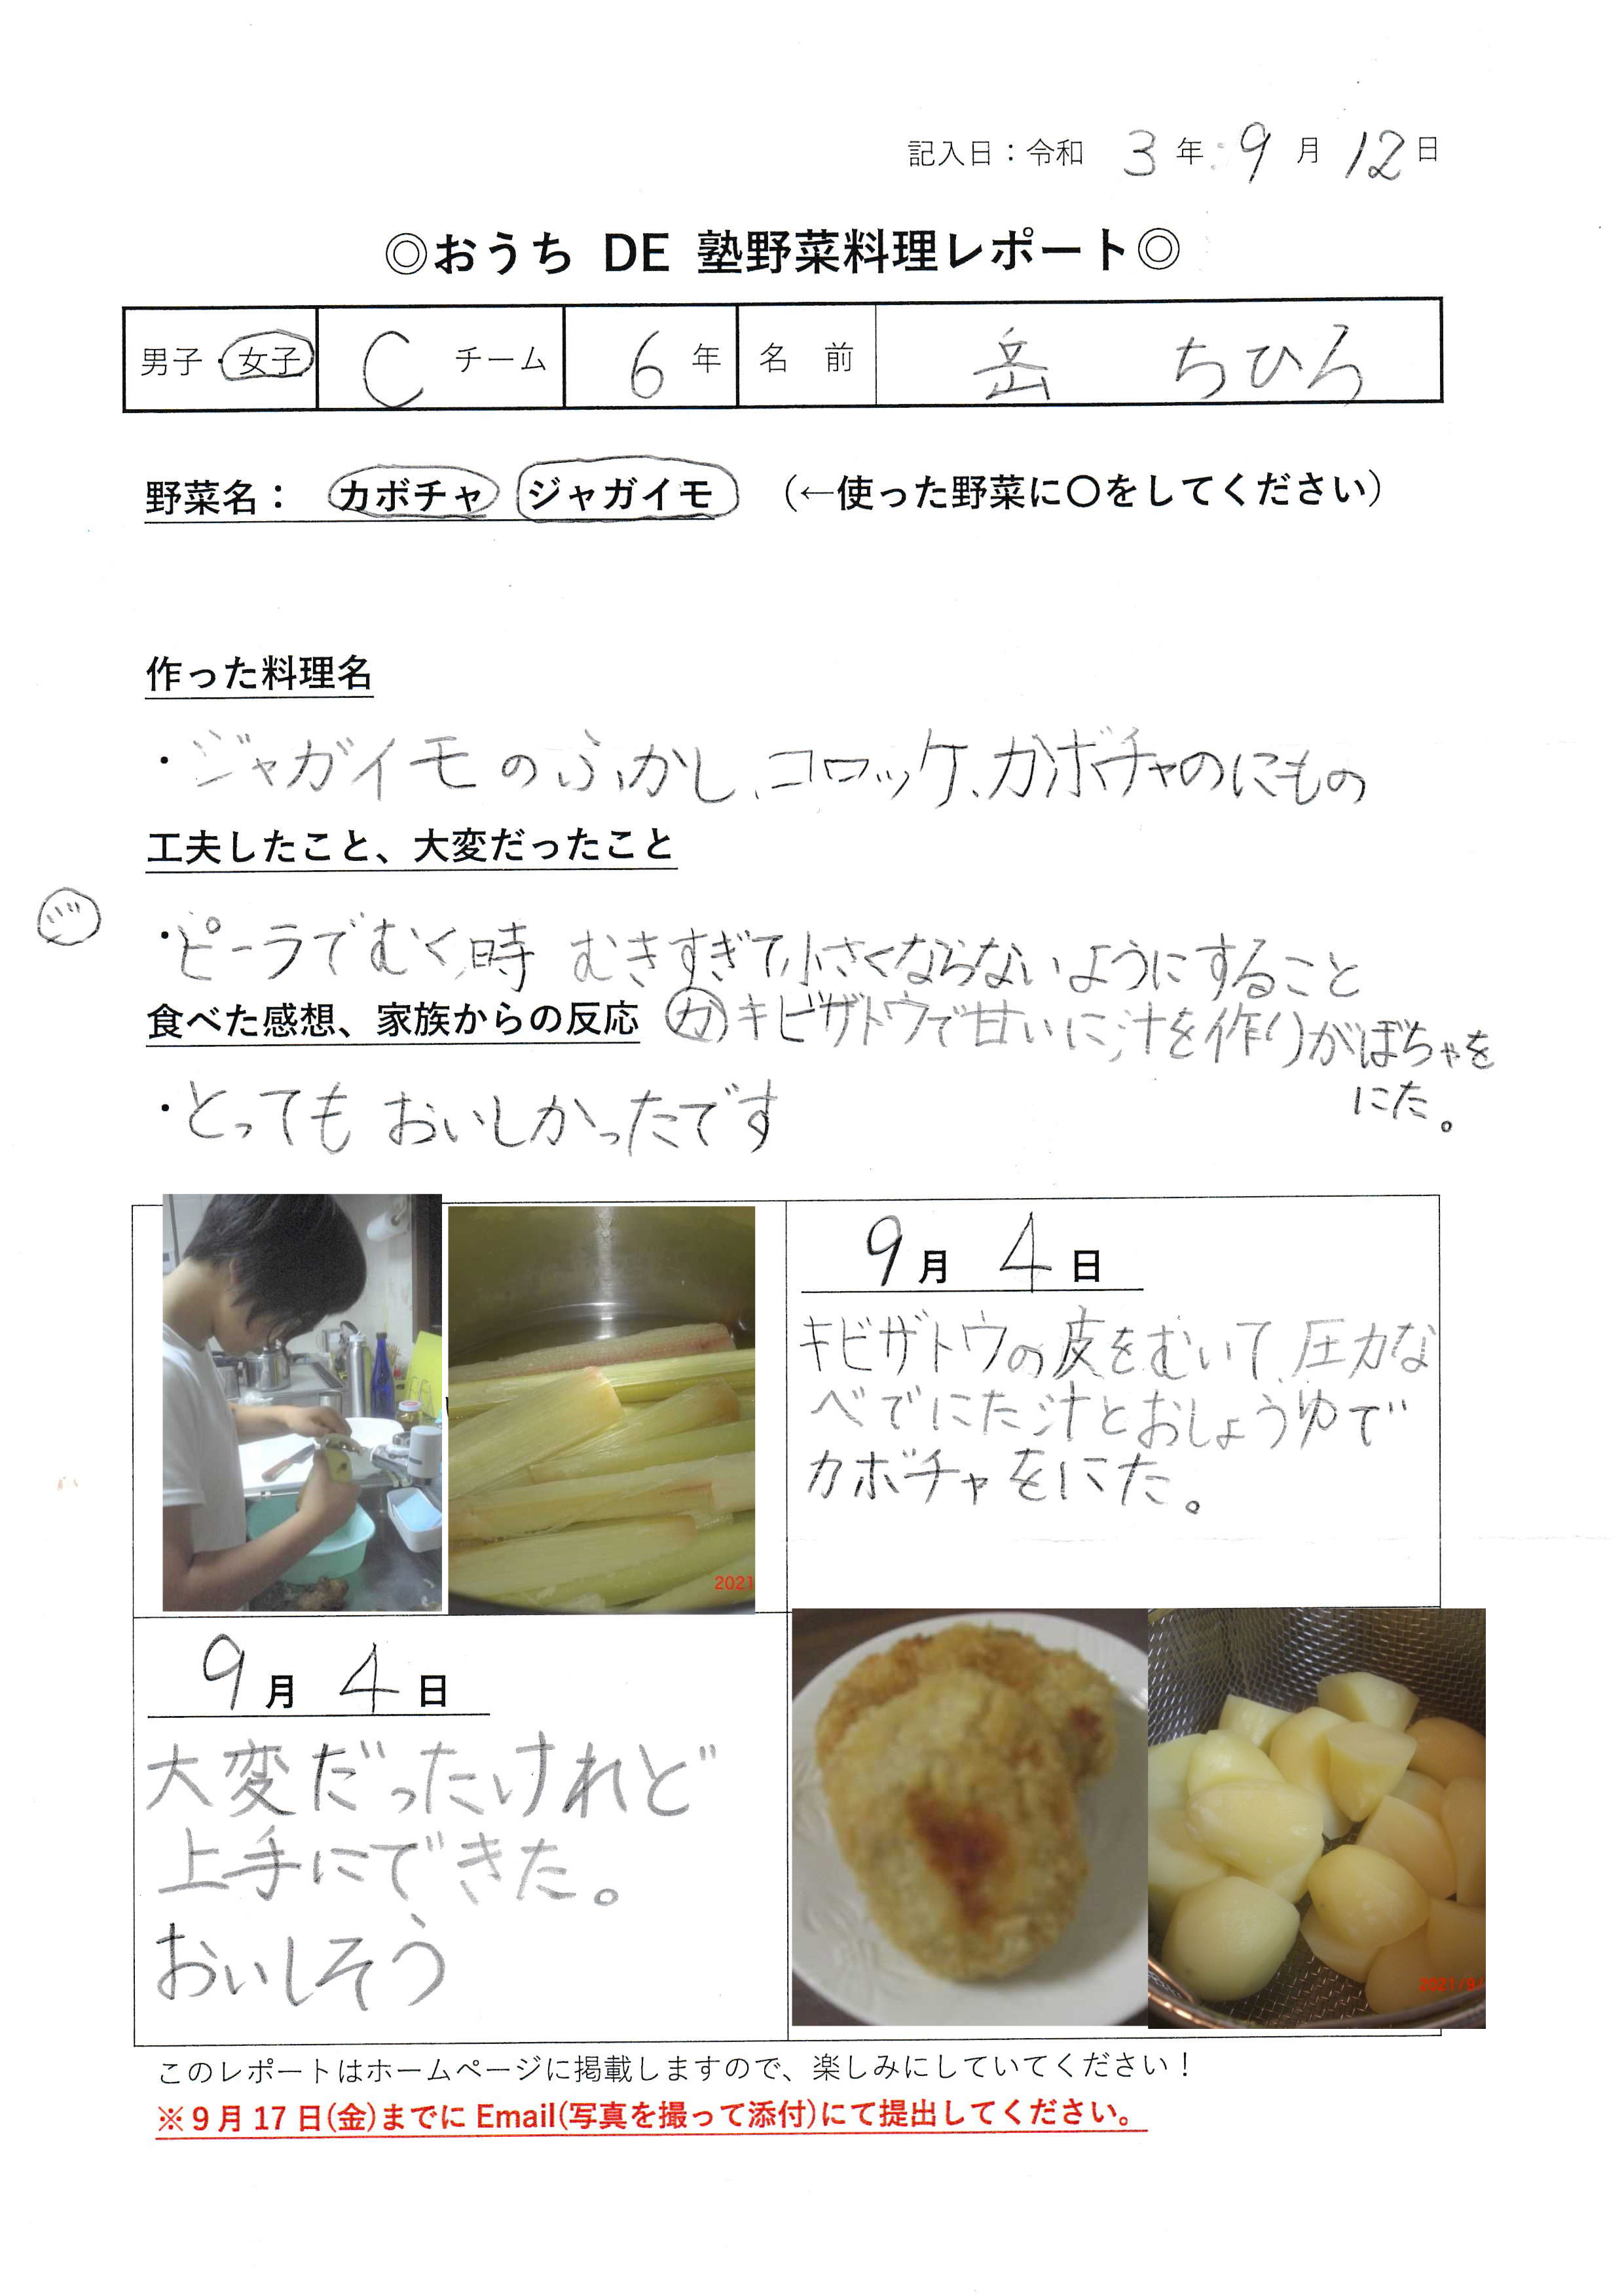 記入日：令和 3 年 9 月 12 日
◎おうち DE 塾野菜料理レポート◎
男子・女子 C チーム 6 年 名前 岳 ちひろ
野菜名： カボチャ ジャガイモ （←使った野菜に〇をしてください）
作った料理名
・ジャガイモのふかし、コロッケ、カボチャのにもの
工夫したこと、大変だったこと
ジ
・ピーラでむく時 むきすぎて小さくならないようにすること
食べた感想、家族からの反応
カ キビザトウで甘いに汁を作りがぼちゃを
にた。
・とっても おいしかったです
9月 4日
キビザトウの皮をむいて、圧力な
べでにた汁とおしょうゆで
カボチャをにた。
2021
9月 4日
大変だったけれど
上手にできた。
おいしそう
2021/9/
このレポートはホームページに掲載しますので、楽しみにしていてください！
※９月 17 日(金)までに Email(写真を撮って添付)にて提出してください。